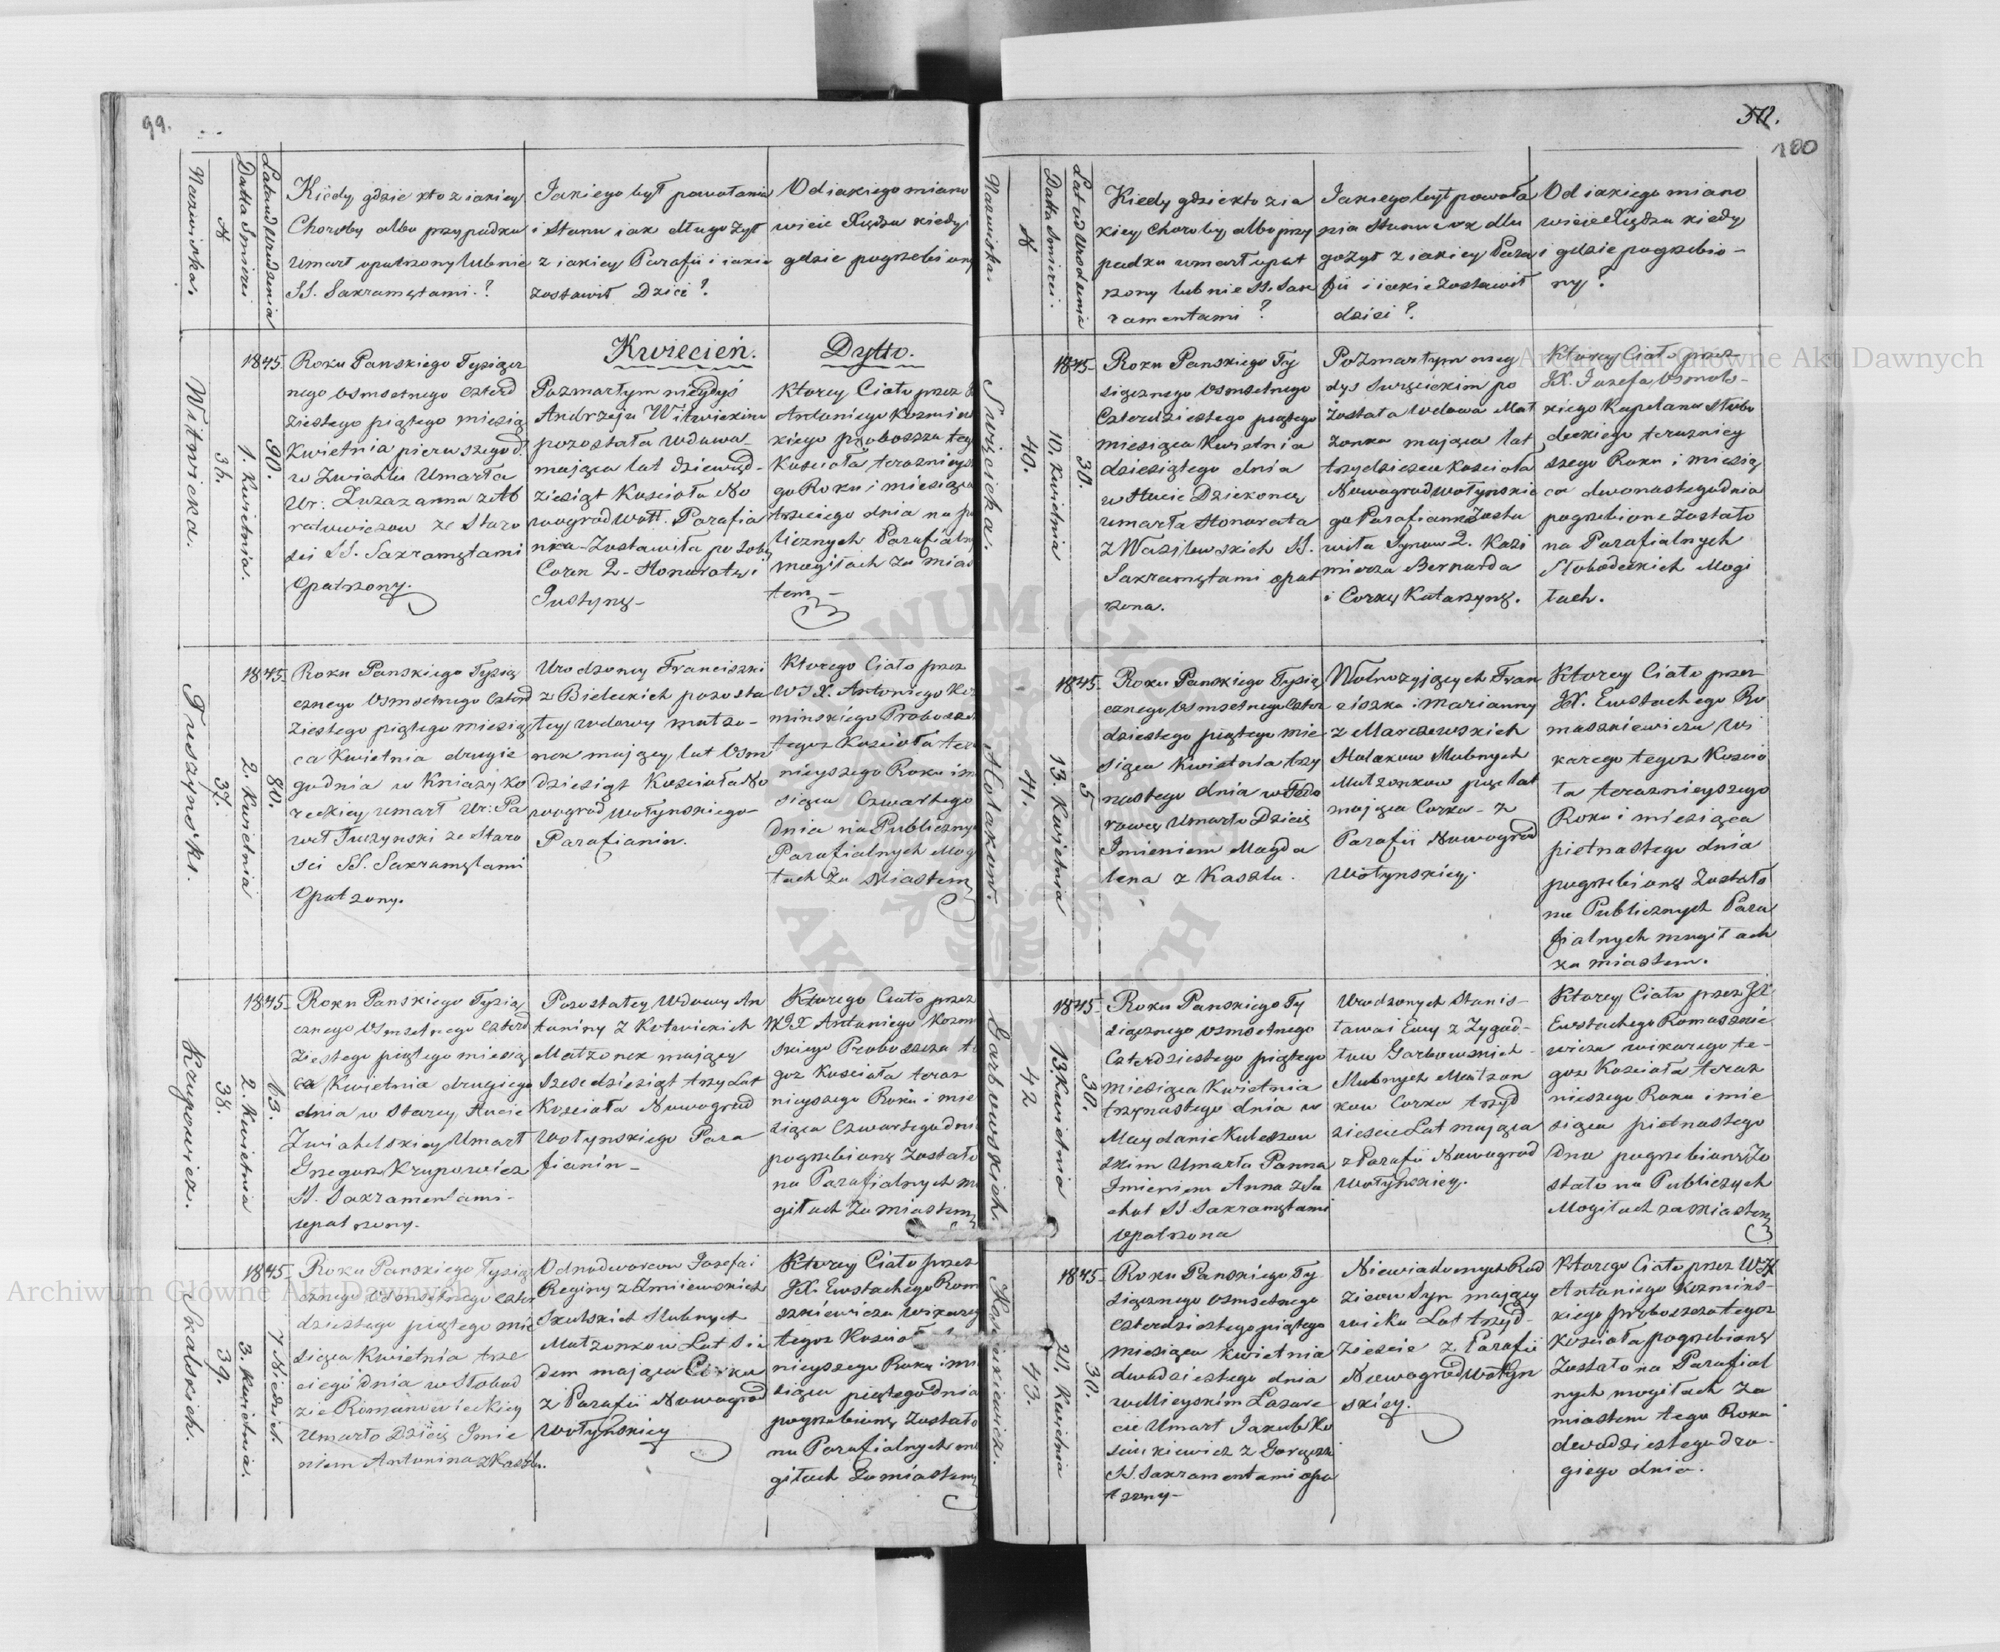 99.
Nazwiska.
N
Datta Smierci
Lata od Urodzenia
Kiedy gdzie kto z iakiey
Choroby albo przypadku
umarł opatrzony lub nie
SS. Sakramętami. ?
Jakiego był powołania
i Stanu iak długo żył
z iakiey Parafii i iakie
zostawił Dzieci ?
Od iakiego miano
wicie Xiędza kiedy i
gdzie pogrzebiony
Kwiecień.
Dytto.
Witwicka.
36.
1. Kwietnia.
90.
1845.
Roku Panskiego Tysiącz
nego Osmsetnego czterd
ziestego piątego miesią
Kwietnia pierwszego d.
w Zwiahlu Umarła
Ur. Zuzazanna z Ab
ramowiczow ze Staro
sci SS. Sakramętami
Opatrzony.
Pozmarłym niegdyś
Andrzeju Witwickim
pozostała wdowa
mająca lat dziewięd-
ziesiąt Kościoła No
wogrod Woł. Parafia
nka Zostawiła po sobie
Corek 2 - Honoratę i
Justynę -
Ktorey Ciało przez
Antoniego Kozmin
kiego proboszcza teg
Kościoła teraznieysze
go Roku i miesiąca
trzeciego dnia na pu
licznych Parafialn
mogiłach za mias
tem -
Tuszynski.
37.
2. Kwietnia
80.
1845.
Roku Panskiego Tysią
cznego Osmsetnego czterd
ziestego piątego miesią
ca Kwietnia drugie
go dnia w Kniaży ko
reckiey umarł Ur. Pa
weł Tuszynski ze Staro
sci SS. Sakramętami
Opatrzony.
Urodzoney Franciszki
z Bieleckich pozosta
łey wdowy małżo-
nek maiący lat Osm
dziesiąt Kościoła No
wogrod Wołynskiego
Parafianin.
Ktorego Ciało przez
WJX. Antoniego Koz
minskiego Proboszcza
tegoż Kościoła tera
nieyszego Roku i m
siąca Czwartego
dnia na Publiczny
Parafialnych Mog
łach za Miastem
Krupowicz.
38.
2. Kwietnia
63.
1845.
Roku Panskiego Tysią
cznego Osmsetnego czterd
ziestego piątego miesią
ca Kwietnia drugiego
dnia w Starey Hucie
Zwiahelskiey Umarł
Grzegorz Krupowicz
SS. Sakramentami
opatrzony.
Pozostałey Wdowy An
toniny z Kotwickich
Małżonek maiący
Szescdziesiąt trzy Lat
Kościoła Nowogrod
Wołynskiego Para
fianin -
Ktorego Ciało przez
WJX Antoniego Kozmi
skiego Proboszcza te
goż Kościoła teraz
nieyszego Roku i mie
siąca Czwartego dni
pogrzebione zostało
na Parafialnych mo
giłach za miastem
Skalskich.
39.
3. Kwietnia.
7 Niedziel.
1845.
Roku Panskiego Tysią
cznego Osmsetnego czter
dziestego piątego mie
siąca Kwietnia trze
ciego dnia w Słobod
zie Romanowieckiey
Umarło Dziecię Imie
niem Antonina z Kaszlu.
Odnodworcow Jozefa i
Reginy z Zmiiewskich
Skalskich Slubnych
Małżonkow Lat Sie
dem mająca Corka
z Parafii Nowogrod
Wołyńskiey
Ktorey Ciało przez
JX. Eustachego Rom
szkiewicza Wikarego
tegoż Kościoł
nieyszego Roku i mi
siąca piątego dnia
pogrzebione zostało
na Parafialnych mo
giłach za miastem
372.
100
Nazwiska.
N
Datta Smierci.
Lat od Urodzenia
Kiedy gdzie kto z ia
kiey Choroby albo przy
padku umarł opat
rzony lub nie SS. Sak
ramentami ?
Jakiego był powoła
nia Stanu iak dłu
go żył z iakiey Para
fii i iakie zostawił
dzieci ?
Od iakiego miano
wicie Xiędza kiedy
i gdzie pogrzebio-
ny ?
Swięcicka.
40.
10. Kwietnia
30.
1845.
Roku Panskiego Ty
siącznego Osmsetnego
Czterdziestego piątego
miesiąca Kwietnia
dziesiątego dnia
w Hucie Dziekoncey
umarła Honorata
z Wasilewskich SS.
Sakramętami opat
rzona.
Po Zmarłym nieg
dys Swięcickim po
została wdowa Mał
żonka mająca lat
trzydzieści Kościoła
Nowogrod Wołynskie
go Parafianka Zosta
wiła Synow 2. Kazi
mierza Bernarda
i Corkę Katarzynę.
Ktorey Ciało przez
JX. Jozefa Osmols-
kiego Kapelana Słobo
deckiego terazniey
szego Roku i miesią
ca dwonastego dnia
pogrzebione zostało
na Parafialnych
Słobodeckich Mogi
łach.
Holakow.
41.
13. Kwietnia
5
1845.
Roku Panskiego Tysią
cznego Osmsetnego czter
dziestego piątego mie
siąca Kwietnia trzy
nastego dnia w Fedo
rowce Umarło Dziecię
Imieniem Magda
lena z Kaszlu.
Wolnożyjących Fran
ciszka i Marianny
z Marczewskich
Holakow Slubnych
Małżonkow pięć lat
mająca Corka - z
Parafii Nowogrod
Wołynskiey.
Ktorey Ciało przez
JX. Eustachego Ro
maszkiewicza Wi
karego tegoż Kościo
ła teraznieyszego
Roku i miesiąca
pietnastego dnia
pogrzebione zostało
na Publicznych Para
fialnych mogiłach
za miastem.
Garbowskich.
42
13. Kwietnia
30.
1845.
Roku Panskiego Ty
siącznego Osmsetnego
Czterdziestego piątego
miesiąca Kwietnia
trzynastego dnia w
Maydanie Kuleszow
skim Umarła Panna
Imieniem Anna z Su
chot SS Sakramętami
Opatrzona
Urodzonych Stanis-
ława i Ewy z Zygad-
łow Garbowskich
Slubnych Małżon
kow Corka trzyd
zieście Lat mająca
z Parafii Nowogrod
Wołyńskiey.
Ktorey Ciało przez JX
Eustachego Romaszkie
wicza wikarego te-
goż Kościoła teraz
nieszego Roku i mie
siąca pietnastego
dnia pogrzebione Zo
stało na Publiczych
Mogiłach za Miastem
43.
20. Kwietnia
30.
1845.
Roku Panskiego Ty
siącznego Osmsetnego
czterdziestego piątego
miesiąca Kwietnia
dwudziestego dnia
w Mieyskim Lazare
cie Umarł Jakub Ko
siukiewicz z Gorączki
SS. Sakramentami opa
trzony -
Niewiadomych Rod
zicow Syn maiący
wieku Lat trzyd-
zieście z Parafii
Nowogrod Wołyn
skiey.
Ktorego Ciało przez WJX
Antoniego Kozmins-
kiego proboszcza tegoż
Kościoła pogrzebione
zostało na Parafial
nych mogiłach za
miastem tego Roku
dwudziestego dru-
giego dnia.
Archiwum Główne Akt Dawnych
Archiwum Główne Akt Dawnych